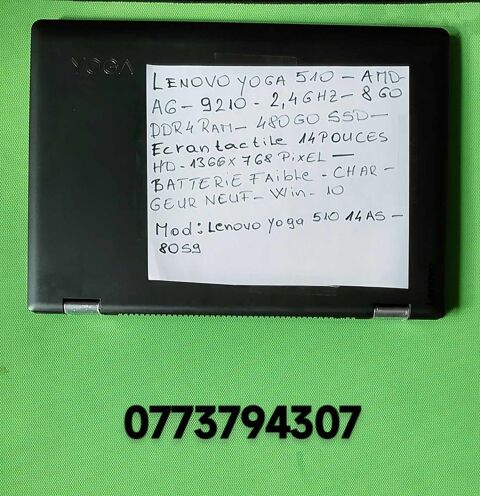 YOGA
LENOVO YOGA 510 - AMD-
A6 - 9210 - 2,4GHZ - 8GO
DDR4 RAM - 480GO SSD -
Ecrantactile 14POUCES
HD - 1366x768 PixEL -
BATTERIE FAible - CHAR -
GEUR NEUF - Win - 10
Mod: Lenovo Yoga 510 14AS -
80S9
Lenovo
0773794307